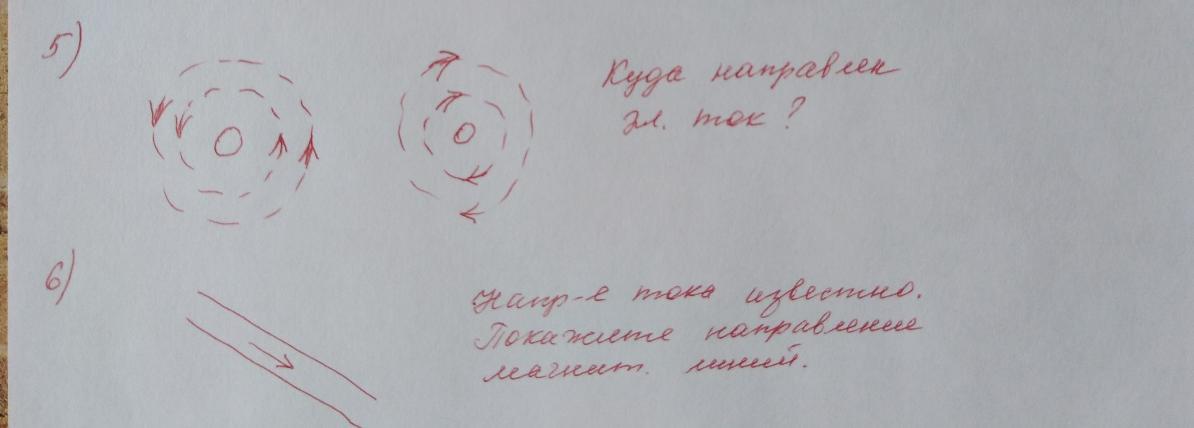 5)
Куда направлен
эл. ток?
6)
Напр-е тока известно.
Покажите направление
магнит. линий.